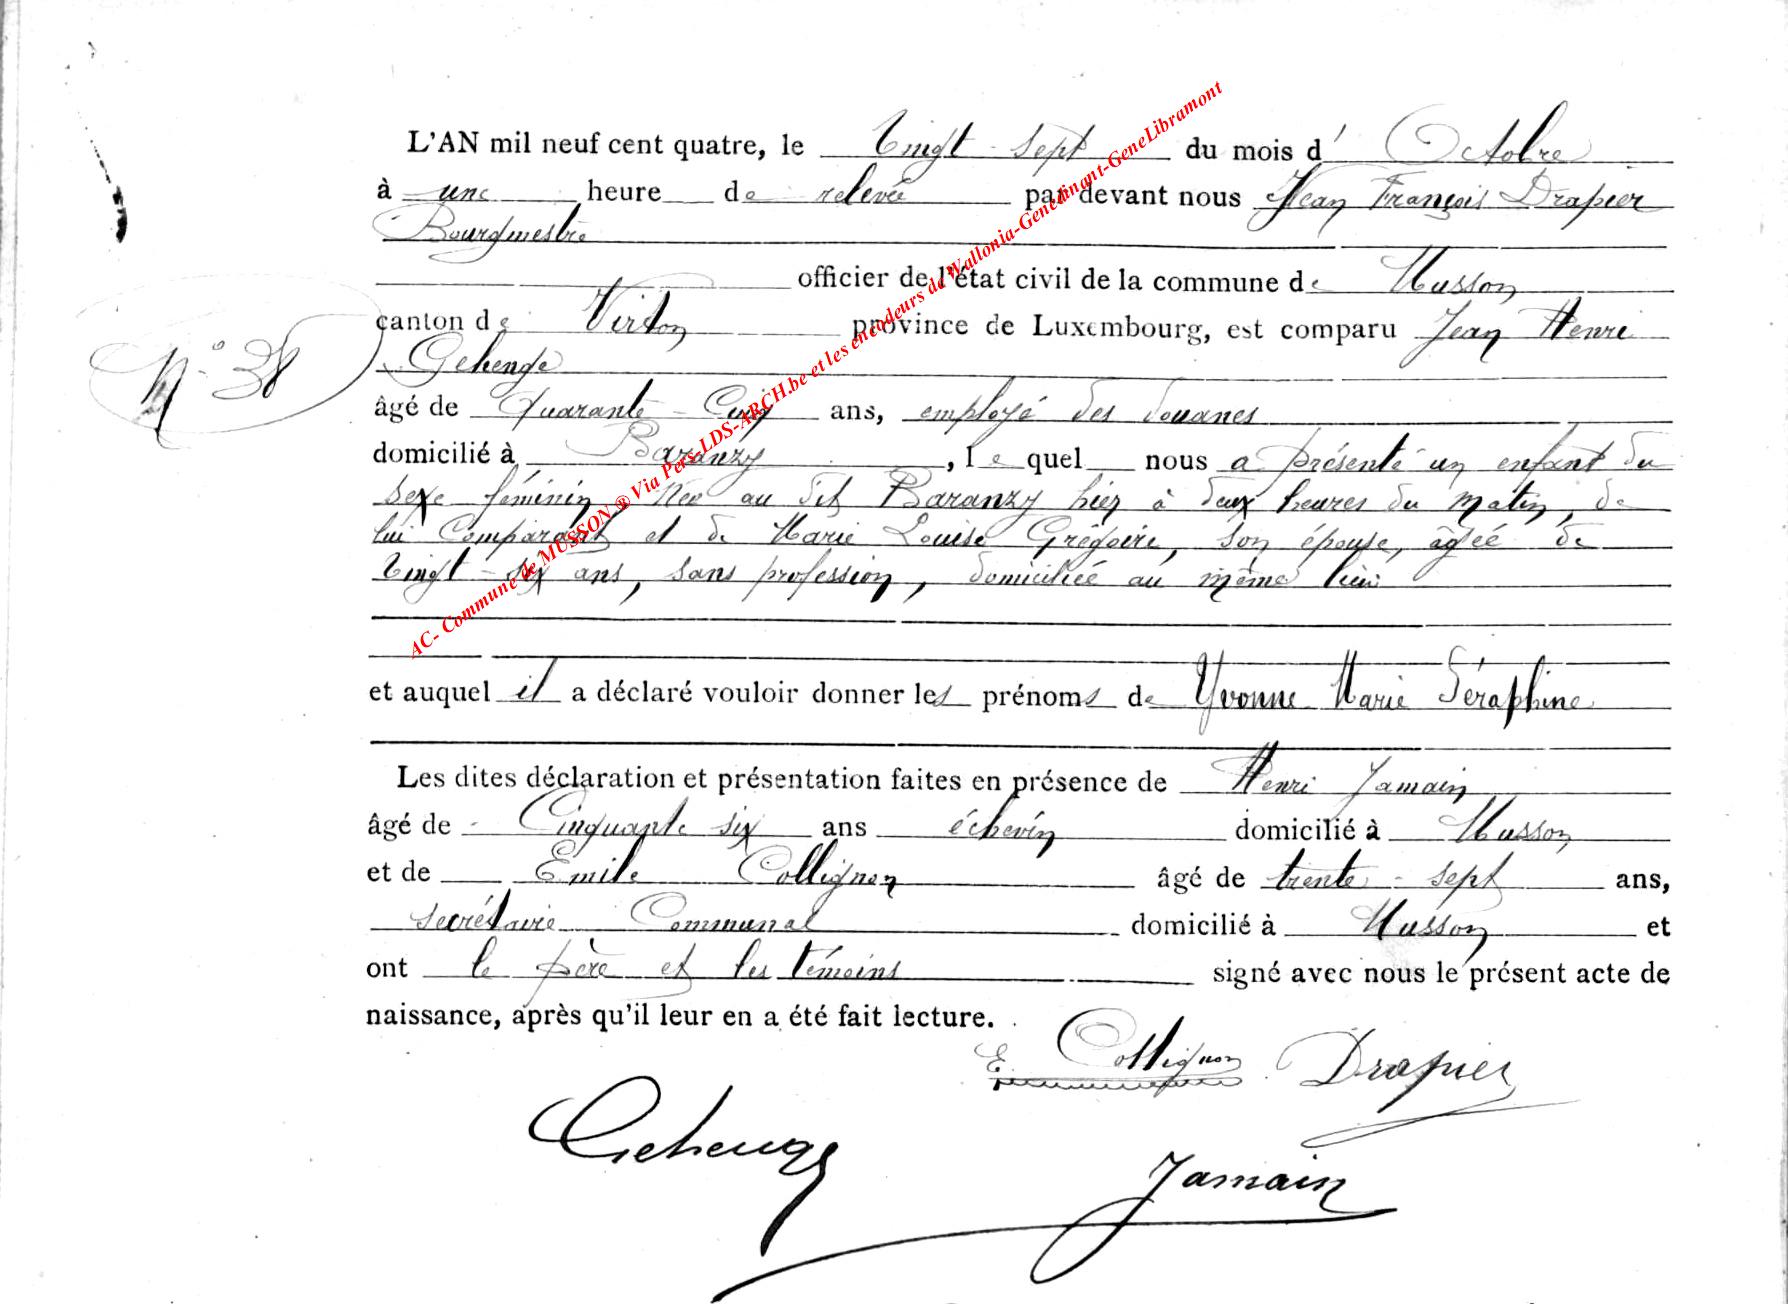 L'AN mil neuf cent quatre, le Vingt-sept du mois d'Octobre
à une heure de relevée par devant nous Jean François Drapier
Bourgmestre
officier de l'état civil de la commune de Musson
canton de Virton province de Luxembourg, est comparu Jean Henri
N° 38
Gehenge
âgé de Quarante-Cinq ans, employé des douanes
domicilié à Baranzy, lequel nous a présenté un enfant du
sexe féminin, née au dit Baranzy hier à deux heures du matin, de
lui Comparant et de Marie Louise Grégoire, son épouse, âgée de
Vingt-six ans, sans profession, domiciliée au même lieu
et auquel il a déclaré vouloir donner les prénoms de Yvonne Marie Séraphine
Les dites déclaration et présentation faites en présence de Henri Jamain
âgé de Cinquante six ans échevin domicilié à Musson
et de Emile Collignon âgé de trente-sept ans,
secrétaire Communal domicilié à Musson et
ont le père et les témoins signé avec nous le présent acte de
naissance, après qu'il leur en a été fait lecture.
E. Collignon Drapier
Gehenge
Jamain
AC- Commune de MUSSON ® Via Pers-LDS-ARCH.be et les encodeurs de Wallonia-Genedinant-GeneLibramont